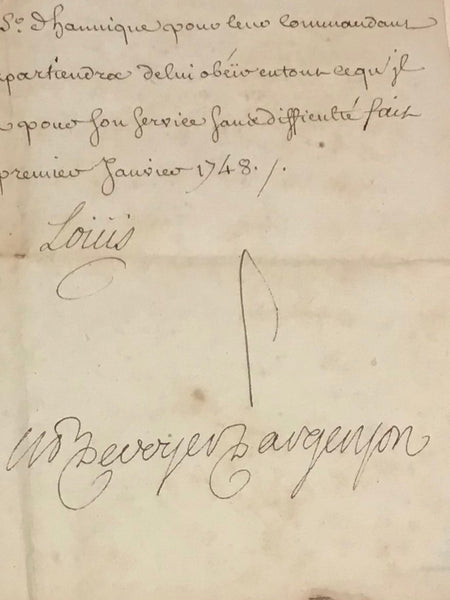 Sr. d'hannique pour leur commandant
partiendra de lui obéir en tout ce qu'il
pour son service sans difficulté fait
premier Janvier 1748. /.
Louis
de Voyer d'argenson